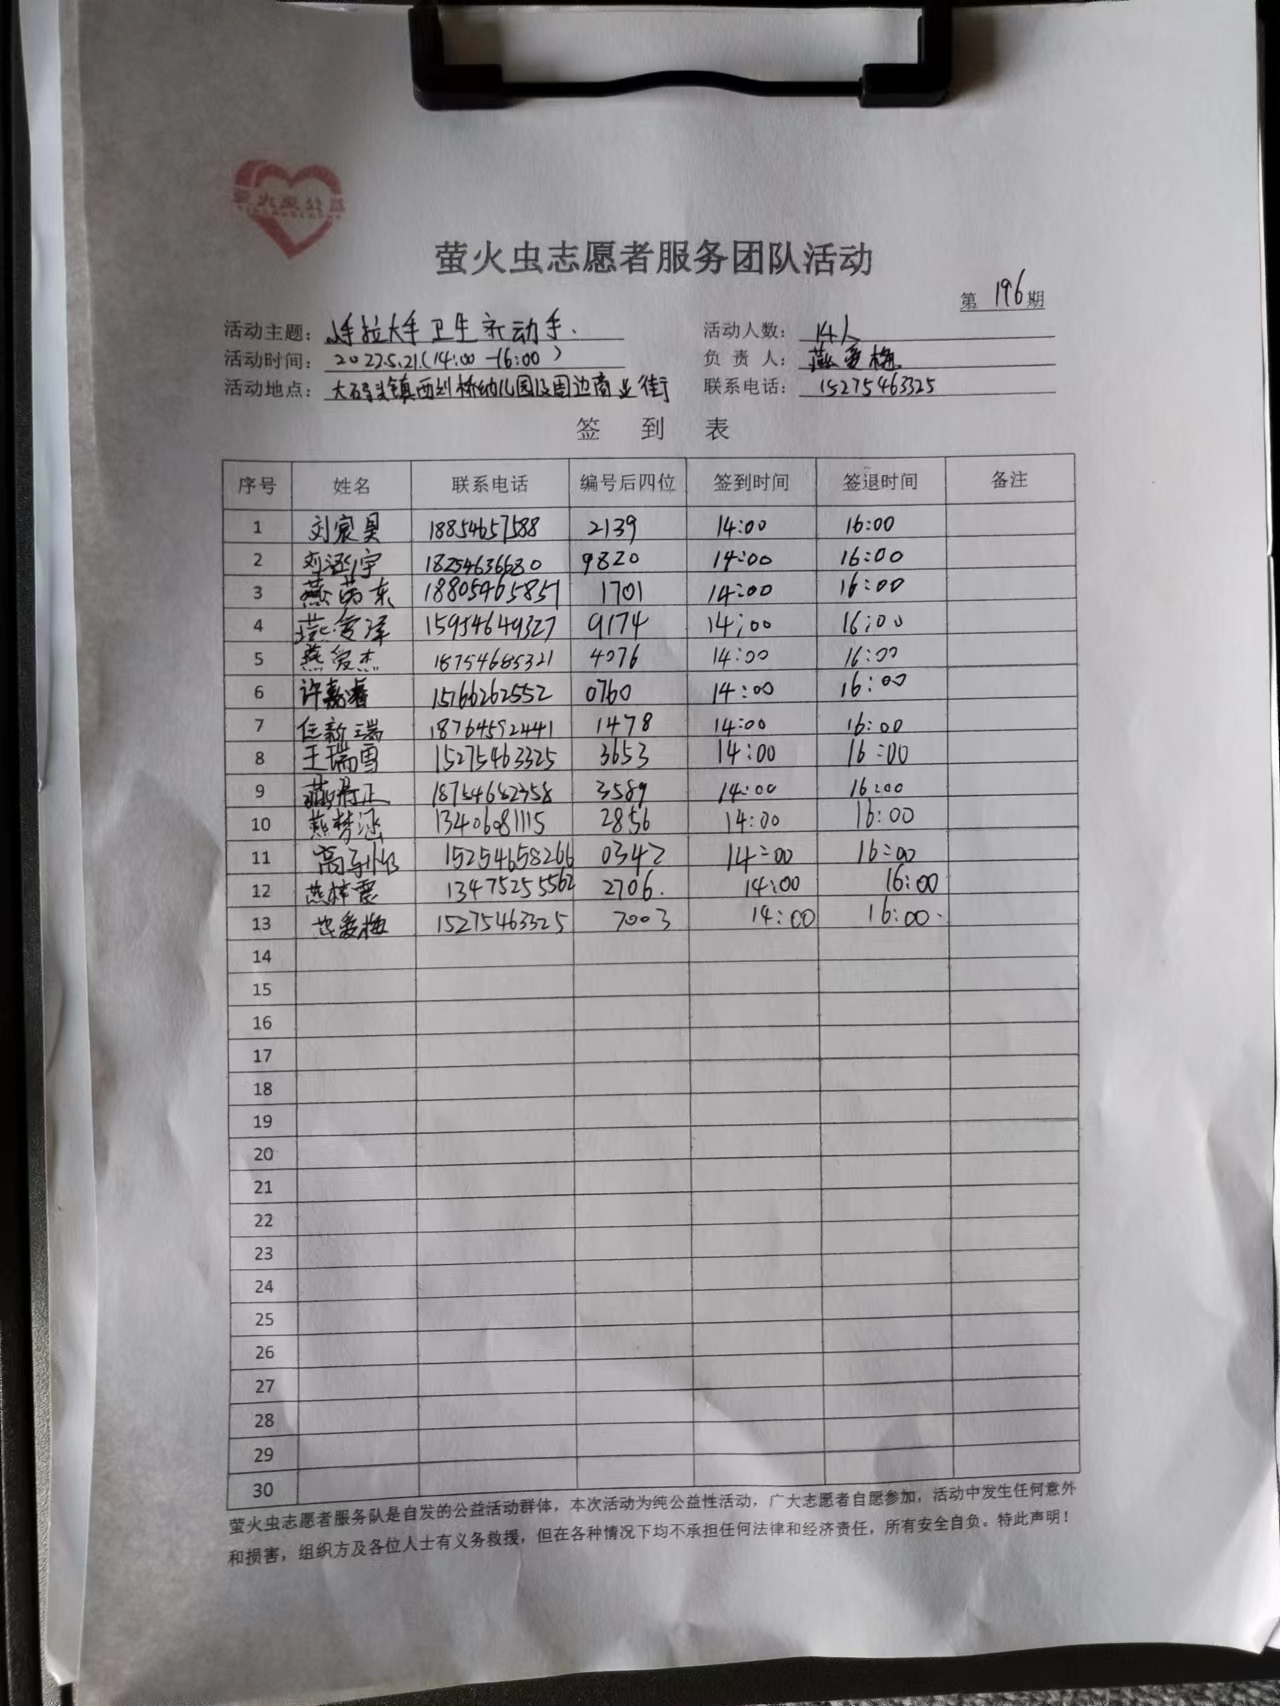 萤火虫公益
萤火虫志愿者服务团队活动
第 196 期
活动主题: 小手拉大手卫生齐动手. 活动人数: 14人
活动时间: 2022.5.21.(14:00-16:00) 负责人: 燕爱梅
活动地点: 大码头镇西刘桥幼儿园及周边商业街 联系电话: 15275463325
签到表
序号 姓名 联系电话 编号后四位 签到时间 签退时间 备注
1 刘宸昊 18854657588 2139 14:00 16:00
2 刘涵宇 18254636680 9820 14:00 16:00
3 燕 东 18805465851 1701 14:00 16:00
4 燕 泽 15954649327 9174 14:00 16:00
5 燕爱杰 18754685321 4076 14:00 16:00
6 许嘉睿 15766262552 0760 14:00 16:00
7 任新瑞 18764592441 1478 14:00 16:00
8 王瑞雪 15275463325 3653 14:00 16:00
9 燕 正 18754682358 3589 14:00 16:00
10 燕梦涵 13406081115 2856 14:00 16:00
11 高 15254658266 0342 14:00 16:00
12 燕梓 13475255562 2706. 14:00 16:00
13 燕爱梅 15275463325 7003 14:00 16:00.
14
15
16
17
18
19
20
21
22
23
24
25
26
27
28
29
30
萤火虫志愿者服务队是自发的公益活动群体，本次活动为纯公益性活动，广大志愿者自愿参加，活动中发生任何意外
和损害，组织方及各位人士有义务救援，但在各种情况下均不承担任何法律和经济责任，所有安全自负。特此声明！